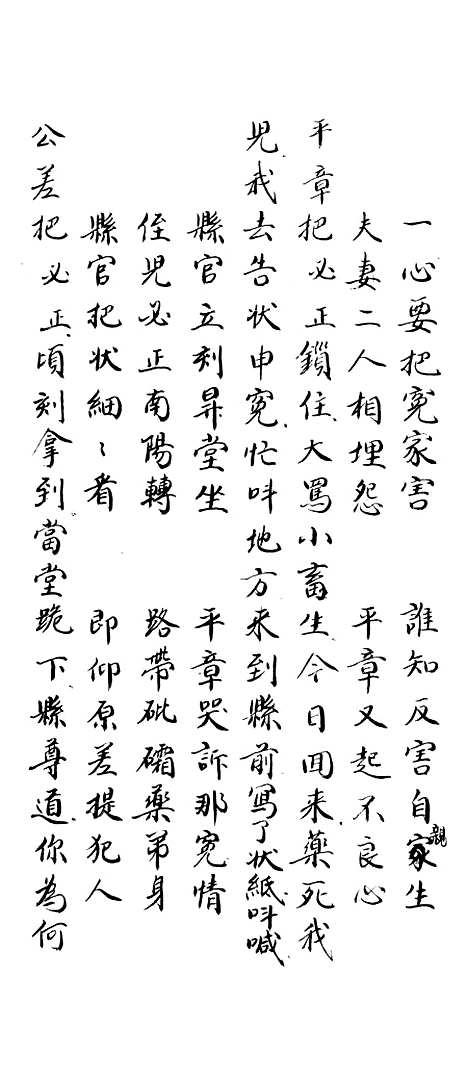 一心要把寃家害　誰知反害自親生
夫妻二人相埋怨　平章又起不良心
平章把必正鎖住大罵小畜生今日囬来藥死我
児我去告状申寃忙呌地方来到縣前寫了状紙呌喊
縣官立刻昇堂坐　平章哭訴那寃情
侄児必正南陽轉　路帶砒礵藥弟身
縣官把状細〻看　即仰原差提犯人
公差把必正頃刻拿到當堂跪下縣尊道你為何